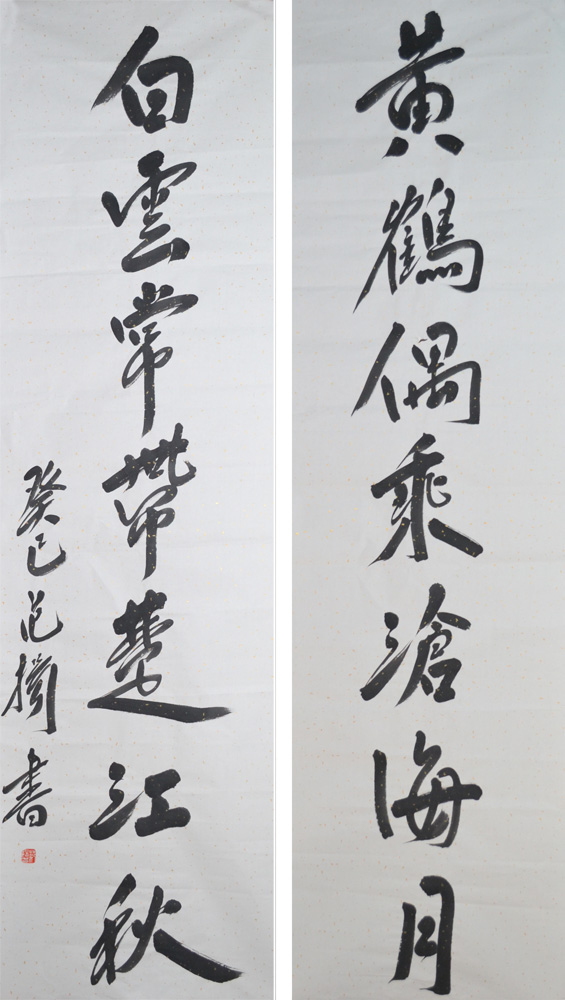 黃鶴偶乘滄海月
白雲常帶楚江秋
癸巳范摛書